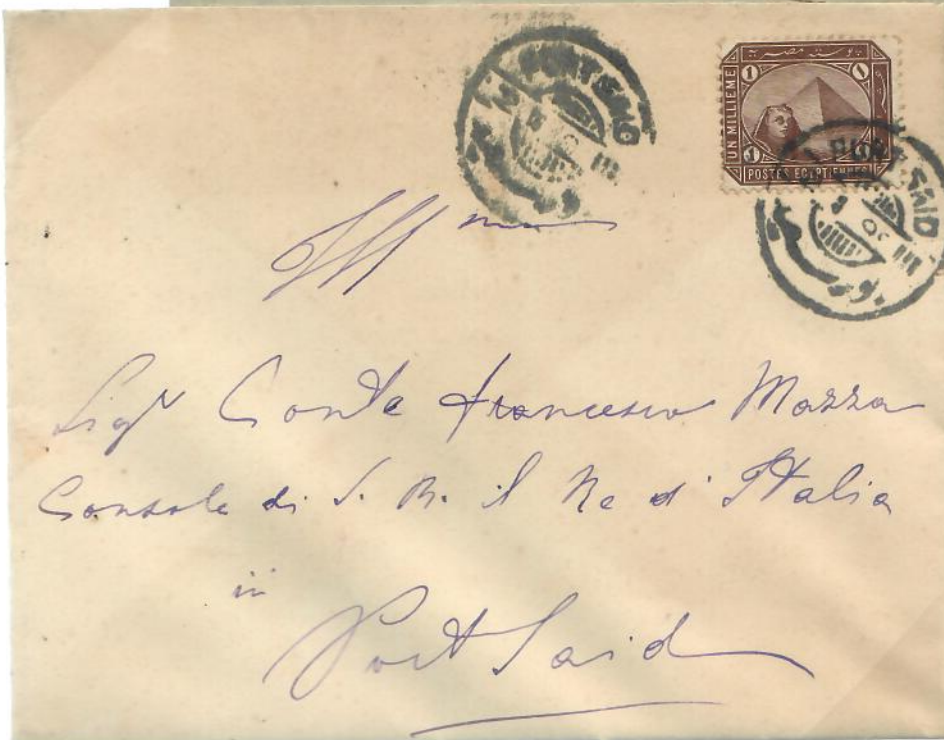 بوستة مصرية
UN MILLIEME
1 ١
1
POSTES EGYPTIENNES
PORT SAID
PORT SAID
Ill mo
Sigr Conte Francesco Mazza
Console di S. M. il Re d'Italia
in
Port Said